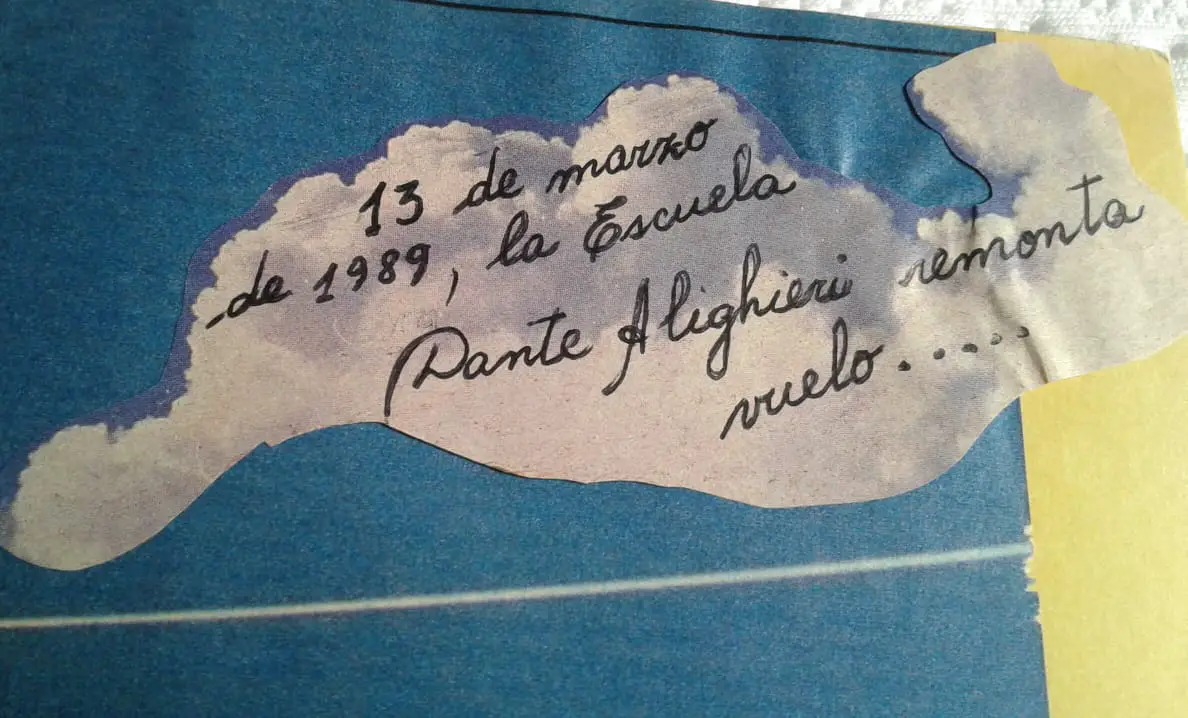 13 de marzo
de 1989, la Escuela
Dante Alighieri remonta
vuelo.....